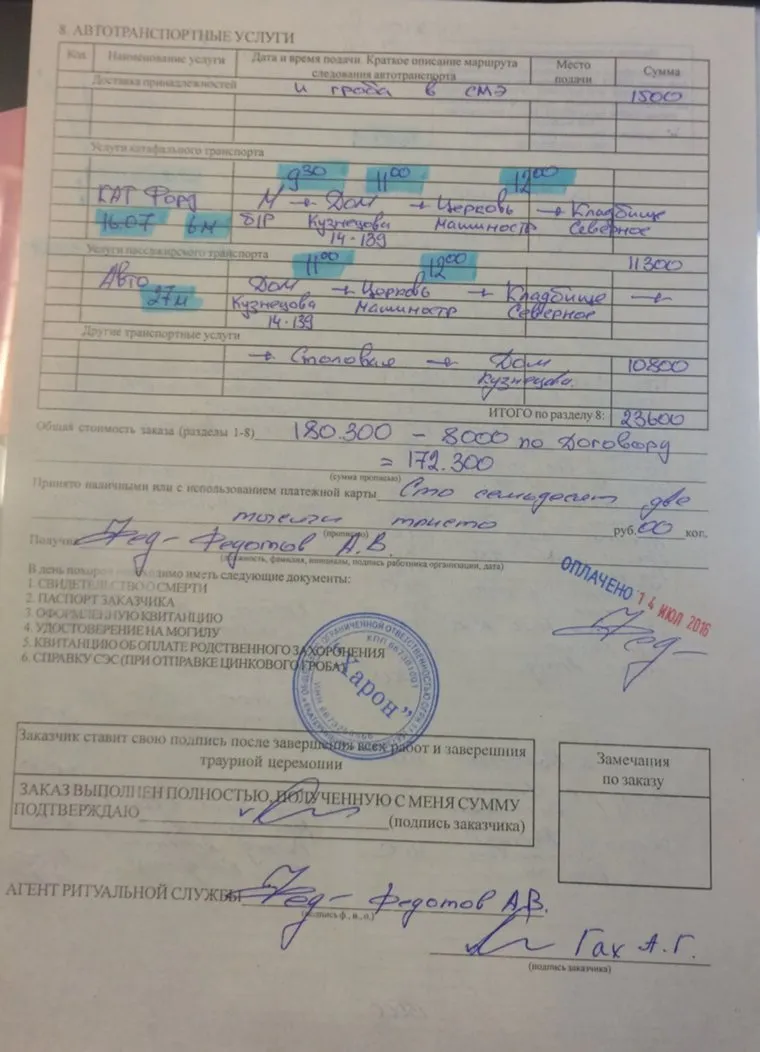 8. АВТОТРАНСПОРТНЫЕ УСЛУГИ
Код Наименование услуги Дата и время подачи. Краткое описание маршрута следования автотранспорта Место подачи Сумма
Доставка принадлежностей и гроба в СМЭ 1500
Услуги катафального транспорта
9 30 11 00 12 00
КАТ Форд М → Дом → Церковь → Кладбище
16.07 6м Кузнецова Машиностр Северное
14-139
Услуги пассажирского транспорта 11 00 12 00 11300
Авто Дом → Церковь → Кладбище →
27м Кузнецова Машиностр Северное
14-139
Другие транспортные услуги
→ Столовая → Дом 10800
Кузнецова
ИТОГО по разделу 8: 23600
Общая стоимость заказа (разделы 1-8) 180.300 - 8000 по Договору
= 172.300
(сумма прописью)
Принято наличными или с использованием платежной карты Сто семьдесят две
тысячи триста руб. 00 коп.
(прописью)
Получил Фед- Федотов А.В.
(должность, фамилия, инициалы, подпись работника организации, дата)
ОПЛАЧЕНО 14 ИЮЛ 2016
В день похорон необходимо иметь следующие документы:
1. СВИДЕТЕЛЬСТВО О СМЕРТИ
2. ПАСПОРТ ЗАКАЗЧИКА
3. ОФОРМЛЕННУЮ КВИТАНЦИЮ
4. УДОСТОВЕРЕНИЕ НА МОГИЛУ
5. КВИТАНЦИЮ ОБ ОПЛАТЕ РОДСТВЕННОГО ЗАХОРОНЕНИЯ
6. СПРАВКУ СЭС (ПРИ ОТПРАВКЕ ЦИНКОВОГО ГРОБА)
"Харон"
Заказчик ставит свою подпись после завершения всех работ и заверешния
траурной церемонии
ЗАКАЗ ВЫПОЛНЕН ПОЛНОСТЬЮ, ПОЛУЧЕННУЮ С МЕНЯ СУММУ
ПОДТВЕРЖДАЮ (подпись заказчика)
Замечания
по заказу
АГЕНТ РИТУАЛЬНОЙ СЛУЖБЫ Фед- Федотов А.В.
(подпись ф., и., о.)
Гах А.Г.
(подпись заказчика)